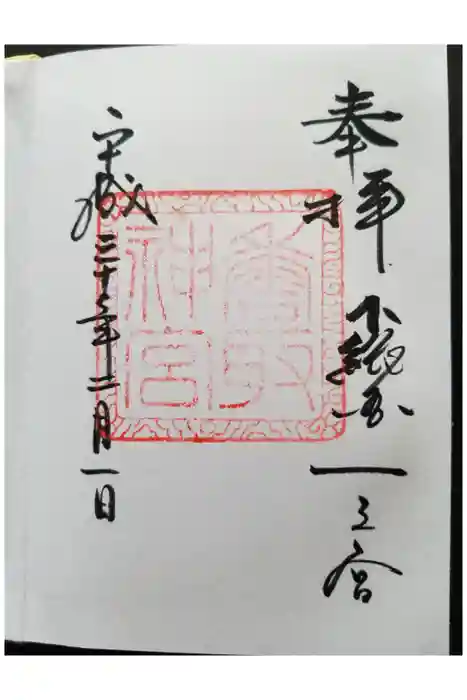 奉拝 下総国一之宮
香取
神宮
平成三十一年二月一日